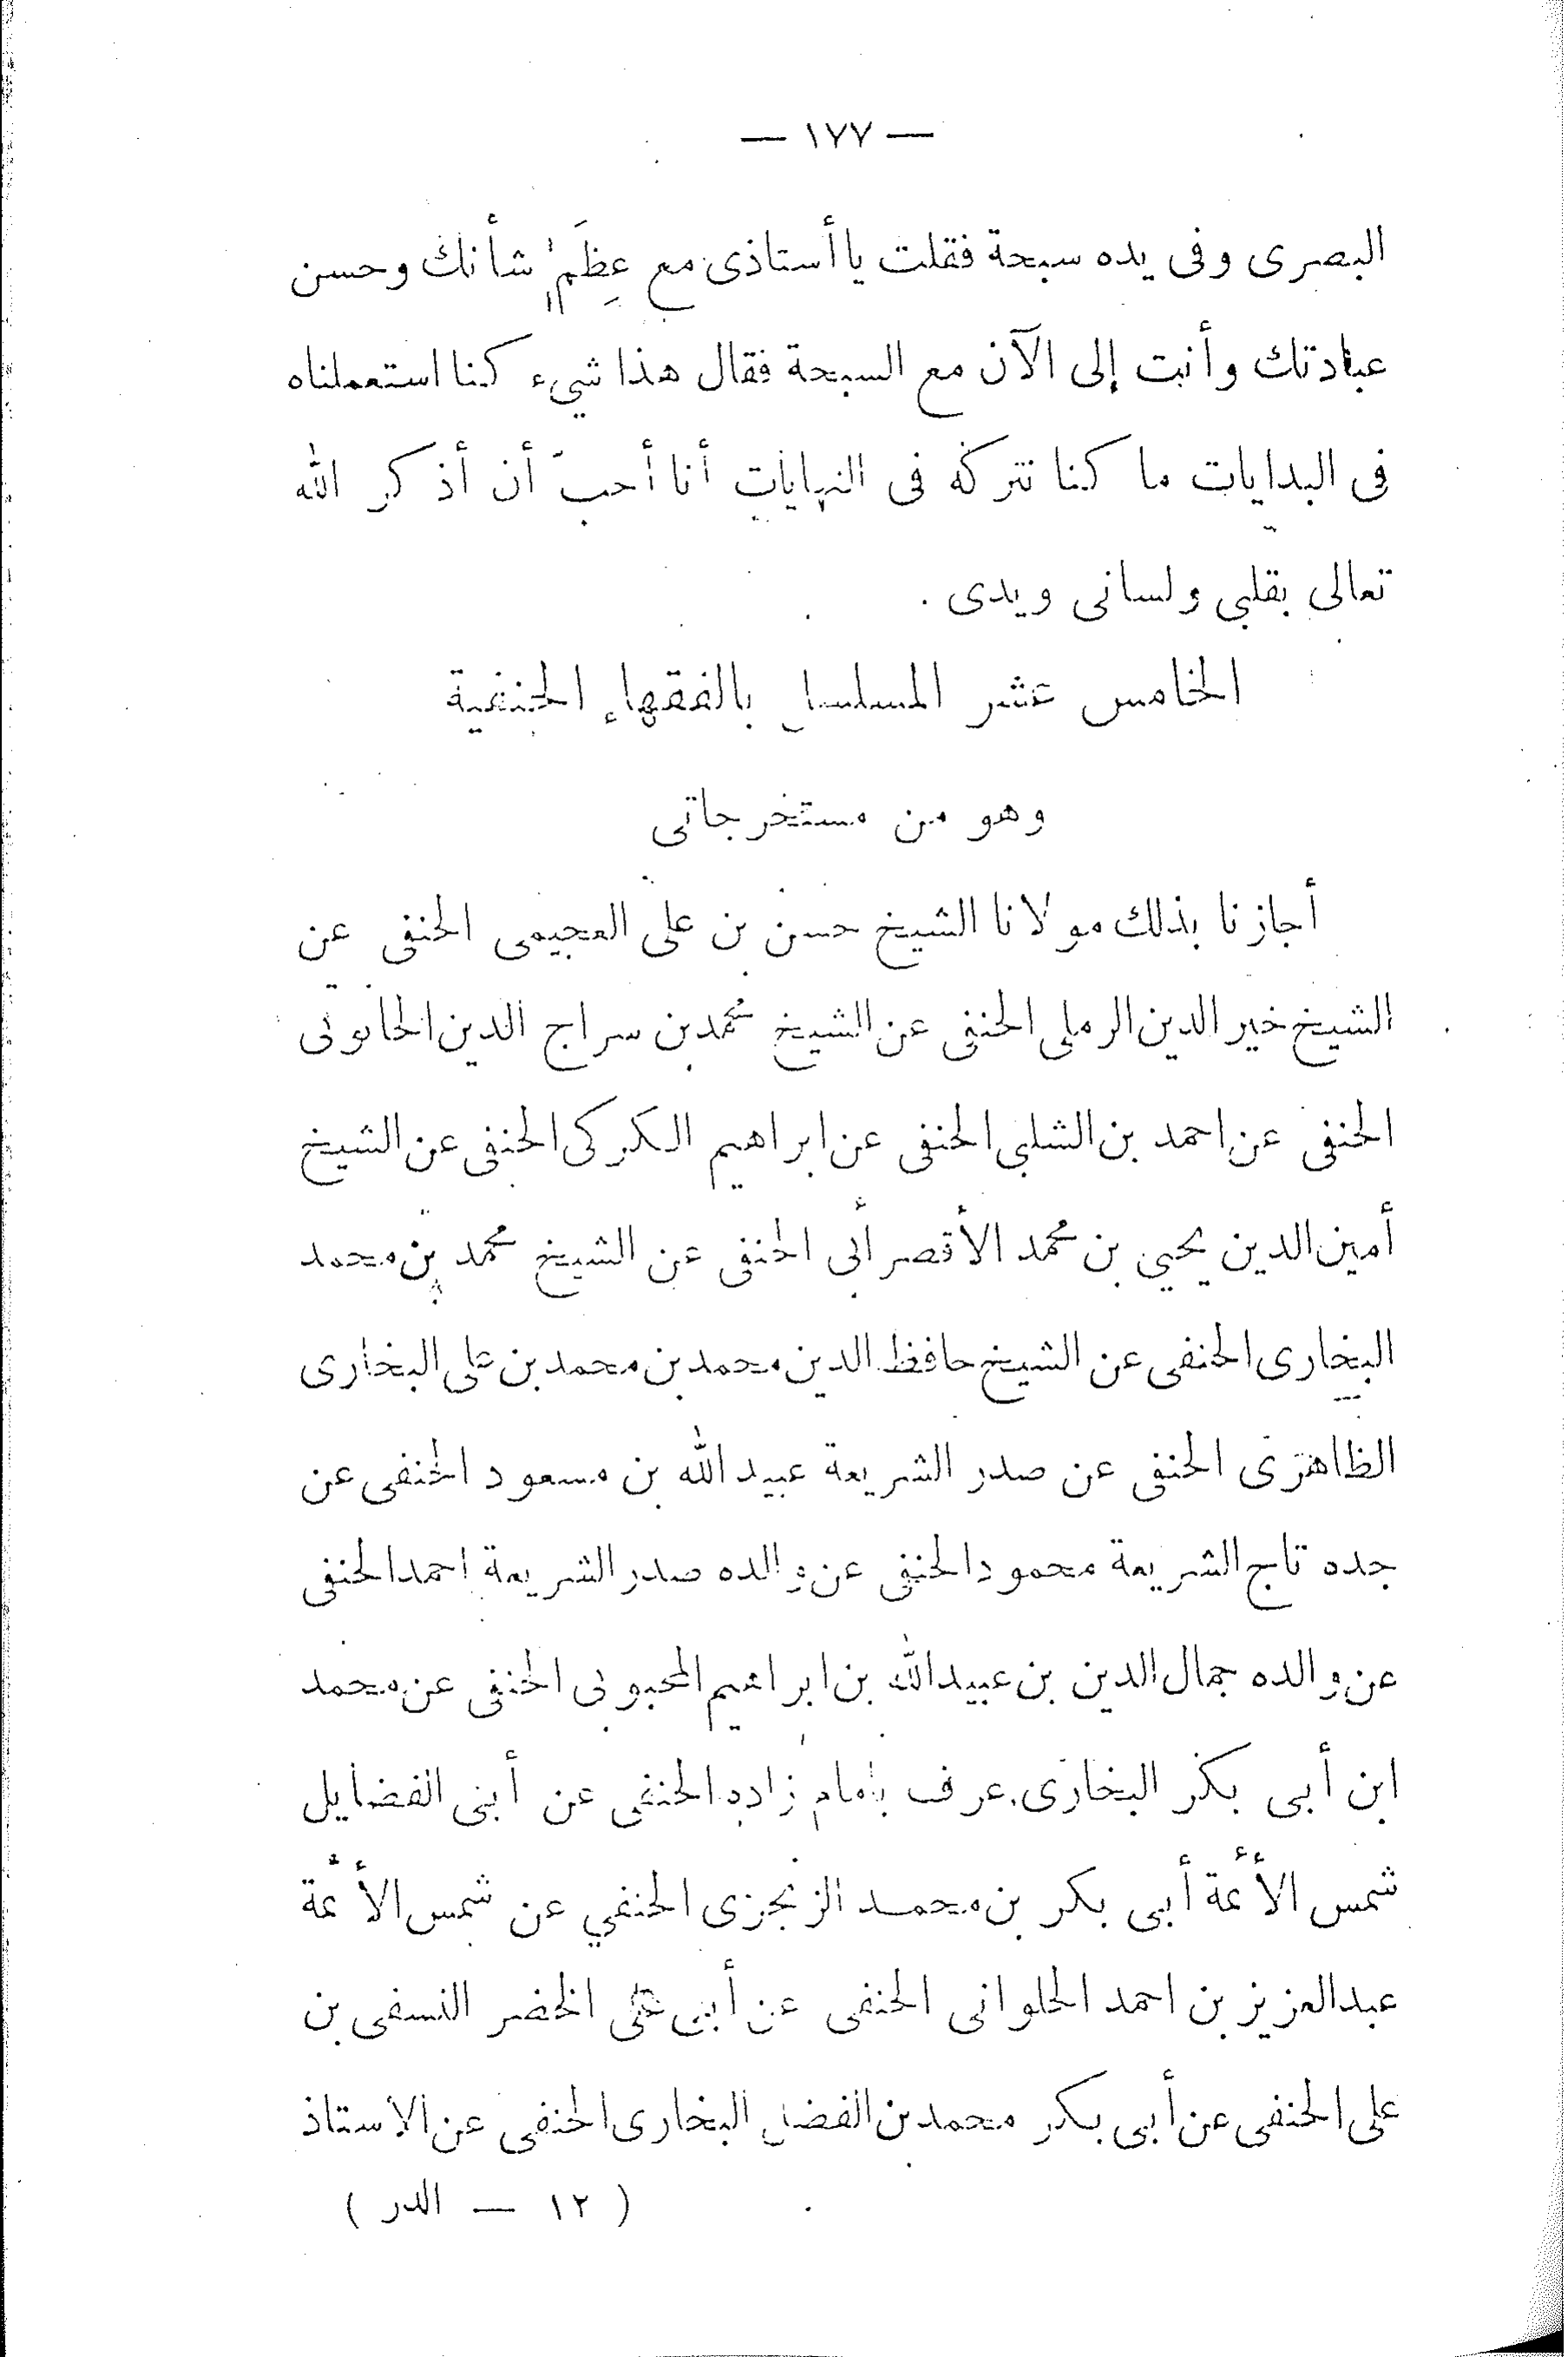 — ١٧٧ —
البصرى وفى يده سبحة فقلت يا أستاذى مع عِظَمِ شأنك وحسن
عبادتك وأنت إلى الآن مع السبحة فقال هذا شيء كنا استعملناه
فى البدايات ما كنا نتركه فى النهايات أنا أحبّ أن أذكر الله
تعالى بقلبى ولسانى ويدى .
الخامس عشر المسلسل بالفقهاء الحنفية
وهو من مستخرجاتى
أجازنا بذلك مولانا الشيخ حسن بن على العجيمى الحنفى عن
الشيخ خير الدين الرملى الحنفى عن الشيخ محمد بن سراج الدين الحانوتى
الحنفى عن احمد بن الشلبى الحنفى عن ابراهيم الكركى الحنفى عن الشيخ
أمين الدين يحيى بن محمد الأقصرأنى الحنفى عن الشيخ محمد بن محمد
البخارى الحنفى عن الشيخ حافظ الدين محمد بن محمد بن على البخارى
الظاهرى الحنفى عن صدر الشريعة عبيد الله بن مسعود الحنفى عن
جده تاج الشريعة محمود الحنفى عن والده صدر الشريعة احمد الحنفى
عن والده جمال الدين بن عبيد الله بن ابراهيم المحبوبى الحنفى عن محمد
ابن أبى بكر البخارى عرف بامام زاده الحنفى عن أبى الفضايل
شمس الأئمة أبى بكر بن محمد الزنجزى الحنفي عن شمس الأئمة
عبد العزيز بن احمد الحلوانى الحنفى عن أبى على الخضر النسفى بن
على الحنفى عن أبى بكر محمد بن الفضل البخارى الحنفى عن الاستاذ
( ١٢ — الدر )